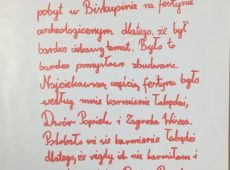 pobyt w Biskupinie na festynie
archeologicznym dlatego, że był
bardzo ciekawy temat. Było to
bardzo pomysłowo zbudowane.
Najciekawszą częścią festynu było
według mnie karmienie łabędzi,
Dwór Popiela i Zagroda Wisza.
Podobało mi się karmienie łabędzi
dlatego, że nigdy ich nie karmiłam i